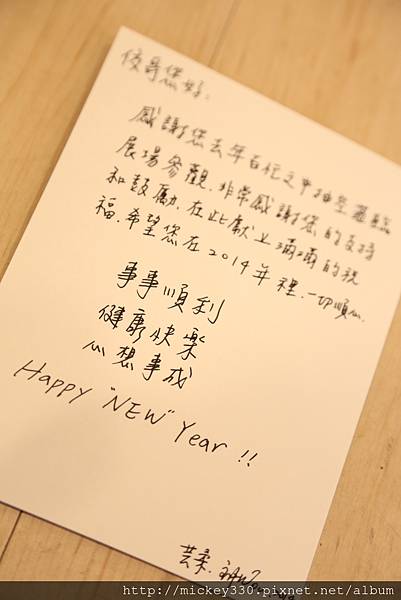 俊哥您好:
感謝您去年百忙之中抽空蒞臨
展場參觀.非常感謝您的支持
和鼓勵.在此獻上滿滿的祝
福.希望您在2014年裡.一切順心.
事事順利
健康快樂
心想事成
Happy "NEW" Year!!
芸柔.
http://mickey330.pixnet.net/album